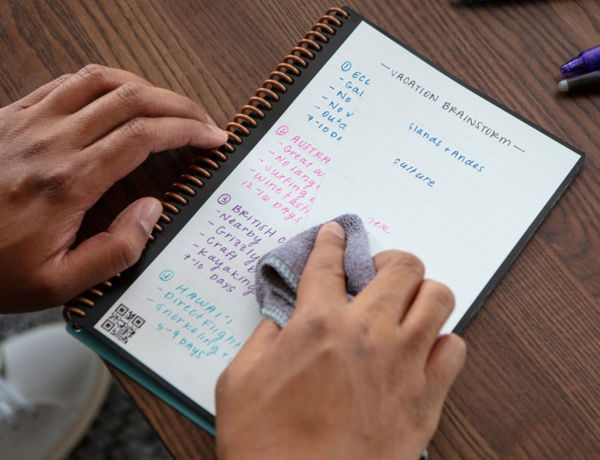 —VACATION BRAINSTORM—
① EC
- Gal slands + Andes
- No
- Nov culture
- Outd
7-10 D
② AUSTRA
- Great w
- No langu
- Surfing
- Wine tasti
12-16 DAYS
③ BRITISH C
- Nearby
- Grizzly
- Craft b
- Kayaking
7-10 DAYS
④ HAWAI'I
- Direct flight
- Snorkeling
5-9 DAYS